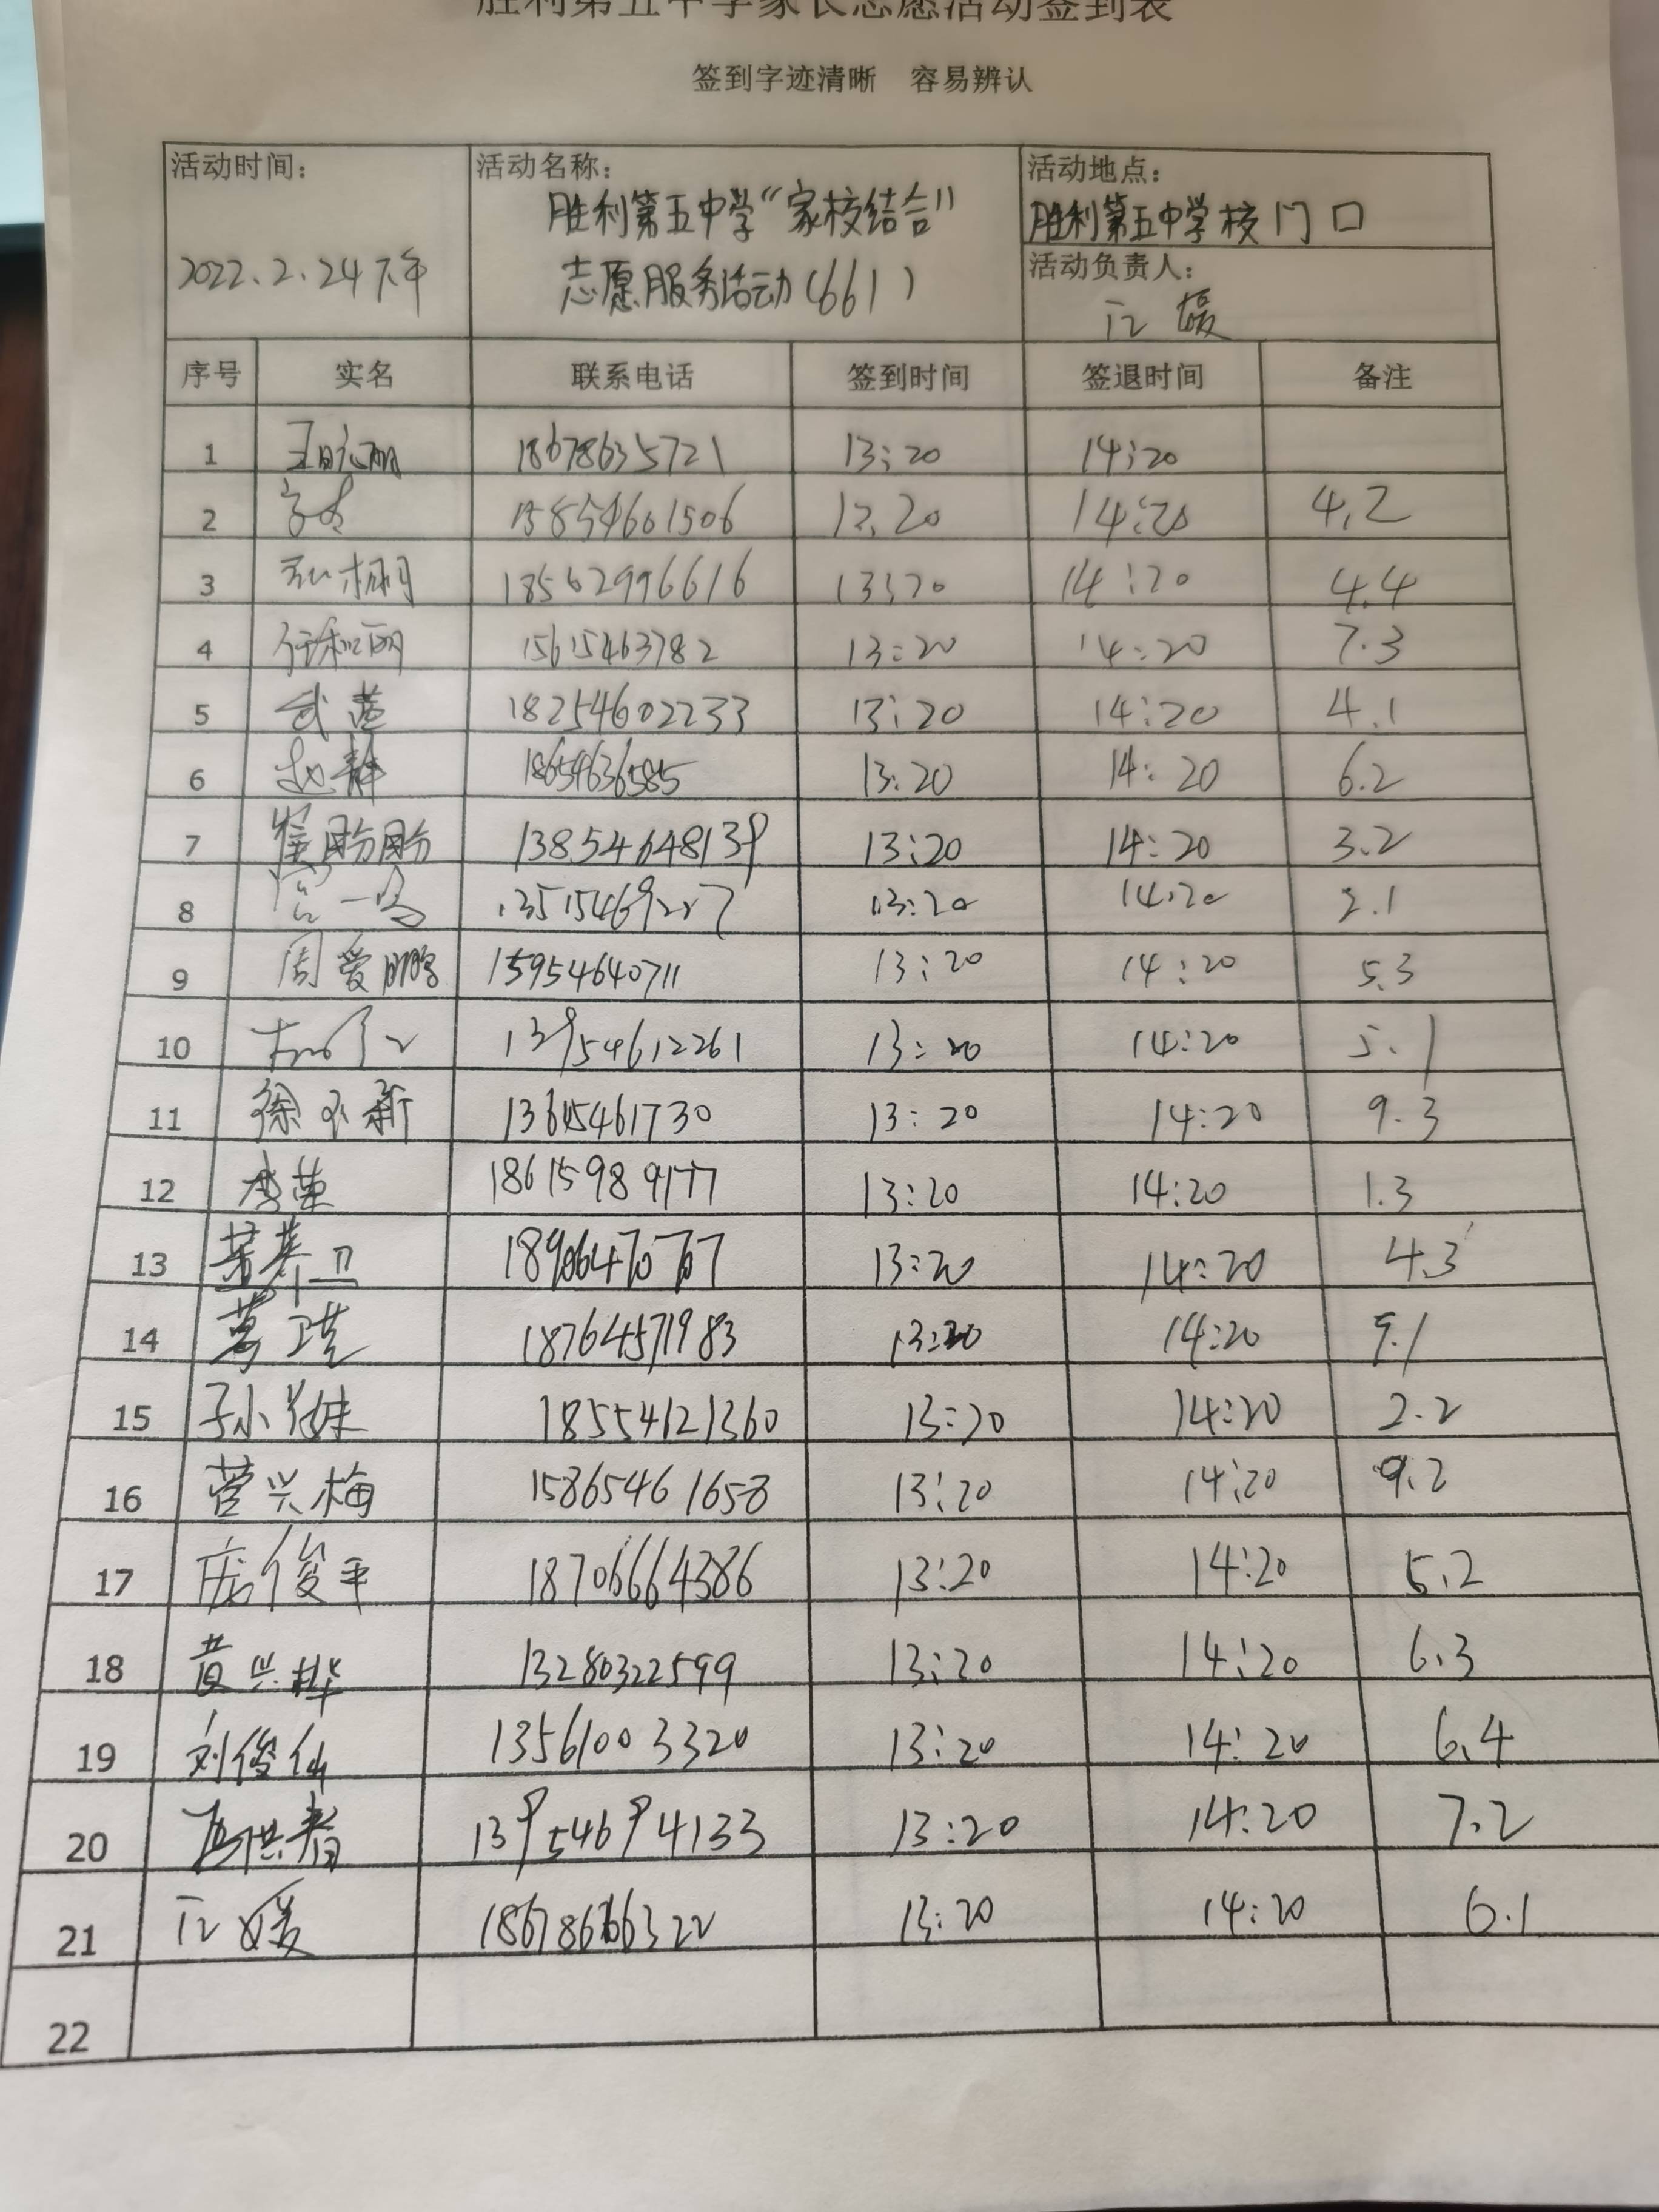 胜利第五中学家长志愿活动签到表
签到字迹清晰 容易辨认
活动时间: 活动名称: 活动地点:
胜利第五中学“家校结合” 胜利第五中学校门口
2022.2.24下午 志愿服务活动(661) 活动负责人:
媛
序号 实名 联系电话 签到时间 签退时间 备注
1 18678635721 13:20 14:20
2 15854601506 13:20 14:20 4.2
3 18562996616 13:20 14:20 4.4
4 任和丽 15615463782 13:20 14:20 7.3
5 武莲 18254602233 13:20 14:20 4.1
6 赵静 18654636585 13:20 14:20 6.2
7 崔盼盼 13854648139 13:20 14:20 3.2
8 13515469227 13:20 14:20 2.1
9 周爱鹏 15954640711 13:20 14:20 5.3
10 13954612261 13:20 14:20 5.1
11 徐 新 13615461730 13:20 14:20 9.3
12 李莲 18615989177 13:20 14:20 1.3
13 18906470767 13:20 14:20 4.3
14 18764571983 13:20 14:20 9.1
15 孙小 18554121360 13:20 14:20 2.2
16 营兴梅 15865461658 13:20 14:20 9.2
17 庞俊平 18706664386 13:20 14:20 5.2
18 黄兴桦 13280322599 13:20 14:20 6.3
19 刘俊仙 13561003320 13:20 14:20 6.4
20 13954694133 13:20 14:20 7.2
21 媛 18678666322 13:20 14:20 6.1
22